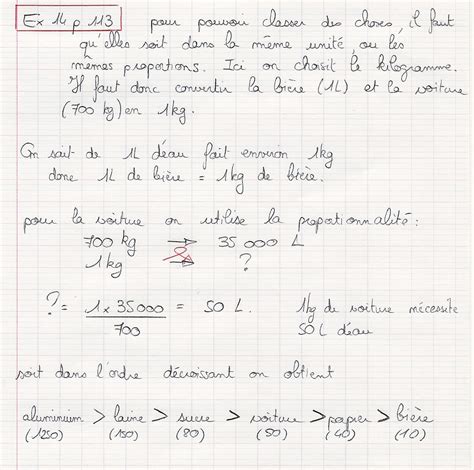 Ex 14 p 113 pour pouvoir classer des choses, il faut
qu'elles soit dans la même unité, ou les
mêmes proportions. Ici on choisit le kilogramme.
Il faut donc convertir la bière (1L) et la voiture
(700 kg) en 1kg.
On sait de 1L d'eau fait environ 1kg
donc 1L de bière = 1kg de bière.
pour la voiture on utilise la proportionnalité:
700 kg → 35 000 L
1 kg → ?
? = 1 x 35000 / 700 = 50 L. 1kg de voiture nécessite
50 L d'eau
soit dans l'ordre décroissant on obtient
aluminium > laine > sucre > voiture > papier > bière
(1250) (150) (80) (50) (40) (10)